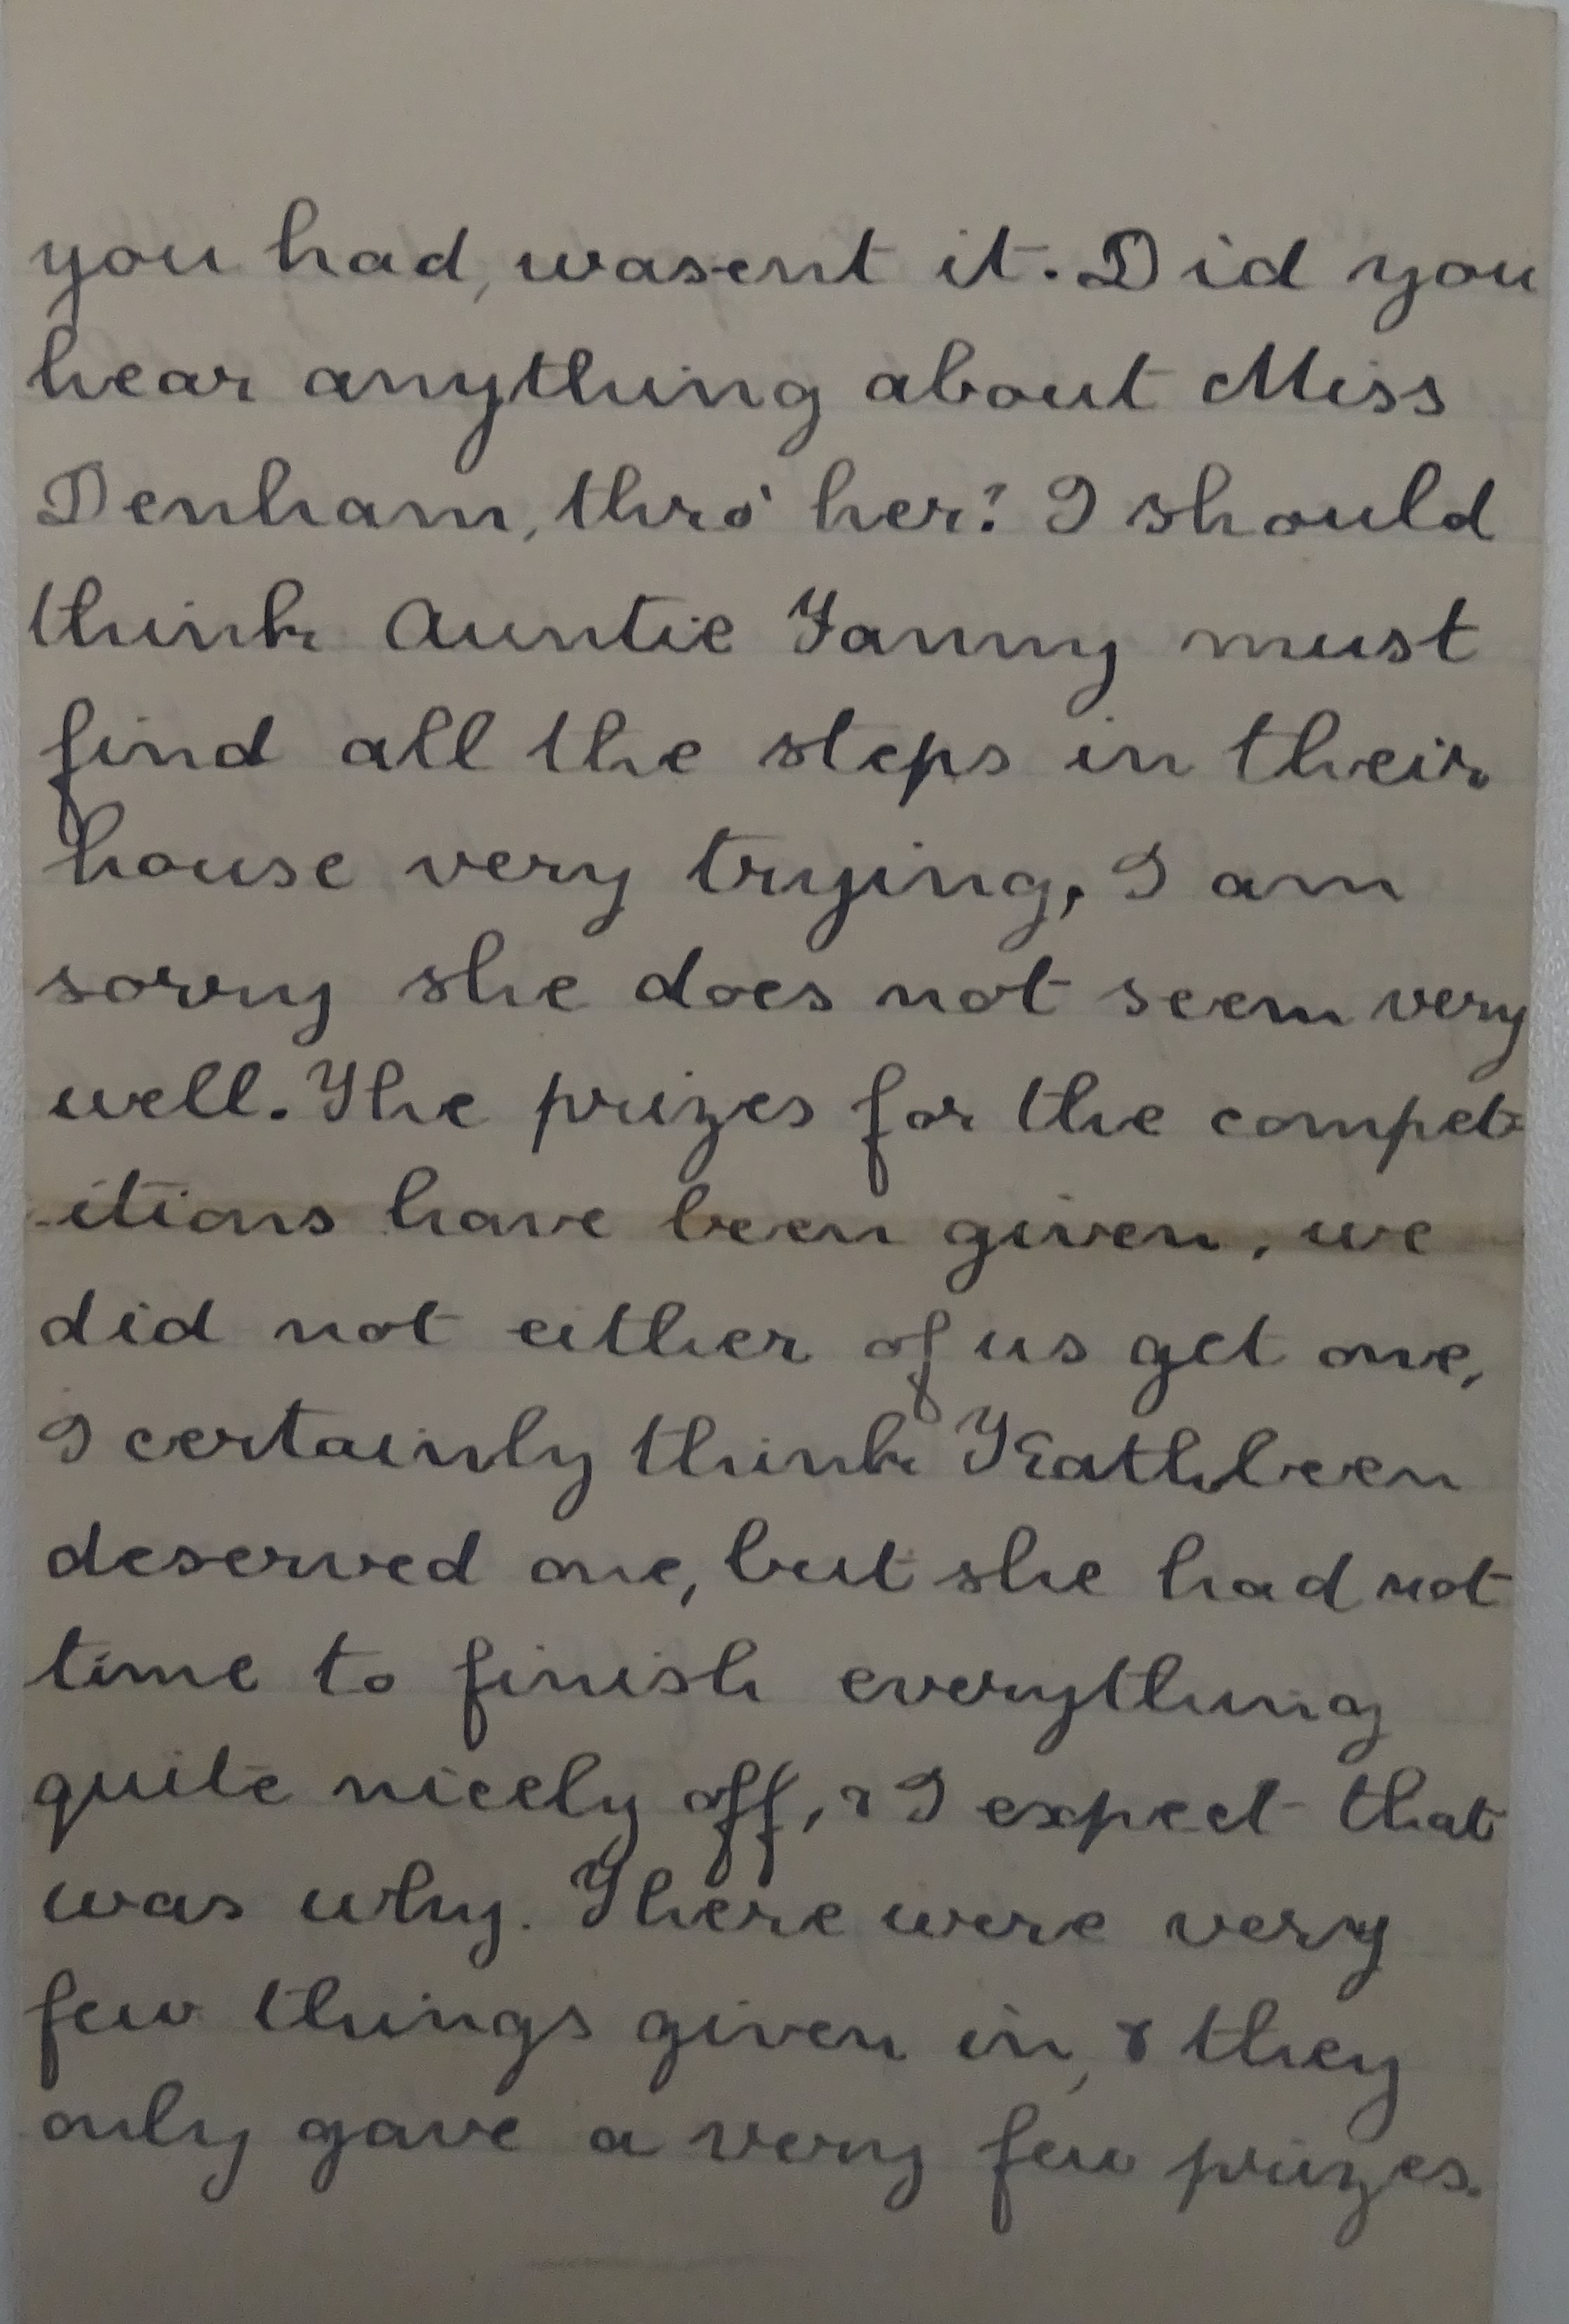 you had, wasent it. Did you
hear anything about Miss
Denham, thro' her? I should
think Auntie Fanny must
find all the steps in their
house very trying, I am
sorry she does not seem very
well. The prizes for the compet-
-itions have been given, we
did not either of us get one,
I certainly think Kathleen
deserved one, but she had not
time to finish everything
quite nicely off, & I expect that
was why. There were very
few things given in, & they
only gave a very few prizes.